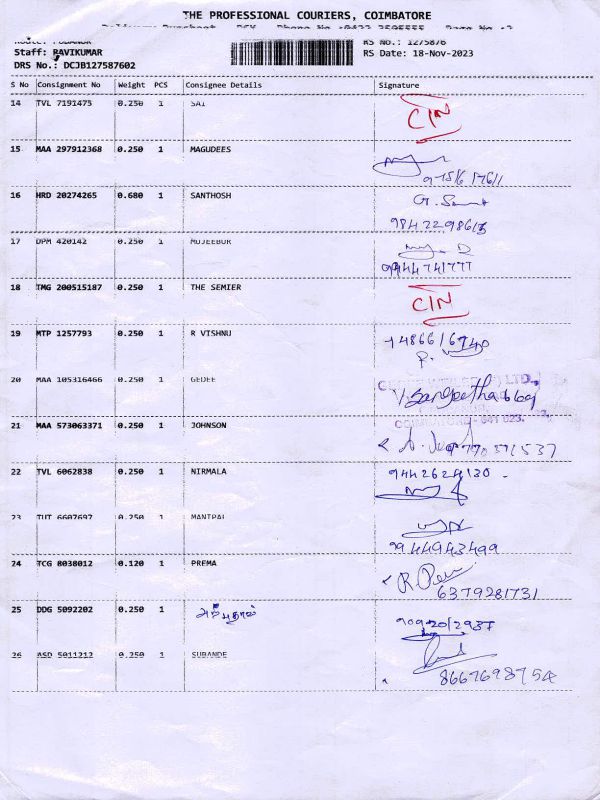 THE PROFESSIONAL COURIERS, COIMBATORE
RS No.: 1275876
Staff: RAVIKUMAR
RS Date: 18-Nov-2023
DRS No.: DCJB127587602
S No Consignment No Weight PCS Consignee Details Signature
14 TVL 7191475 0.250 1 SAI CIN
15 MAA 297912368 0.250 1 MAGUDEES
16 HRD 20274265 0.680 1 SANTHOSH
17 DPM 420142 0.250 1 MUJEEBUR
99444741777
18 TMG 200515187 0.250 1 THE SEMIER CIN
19 MTP 1257793 0.250 1 R VISHNU
20 MAA 105316466 0.250 1 GEDEE
Sangeetha
21 MAA 573063371 0.250 1 JOHNSON
22 TVL 6062838 0.250 1 NIRMALA
9442629130
23 TUT 6607697 0.250 1 MANIPAL
9944943499
24 TCG 8038012 0.120 1 PREMA
6379281731
25 DDG 5092202 0.250 1 அற்புதராஜ்
26 ASD 5011212 0.250 1 SUBANDE
8667698754